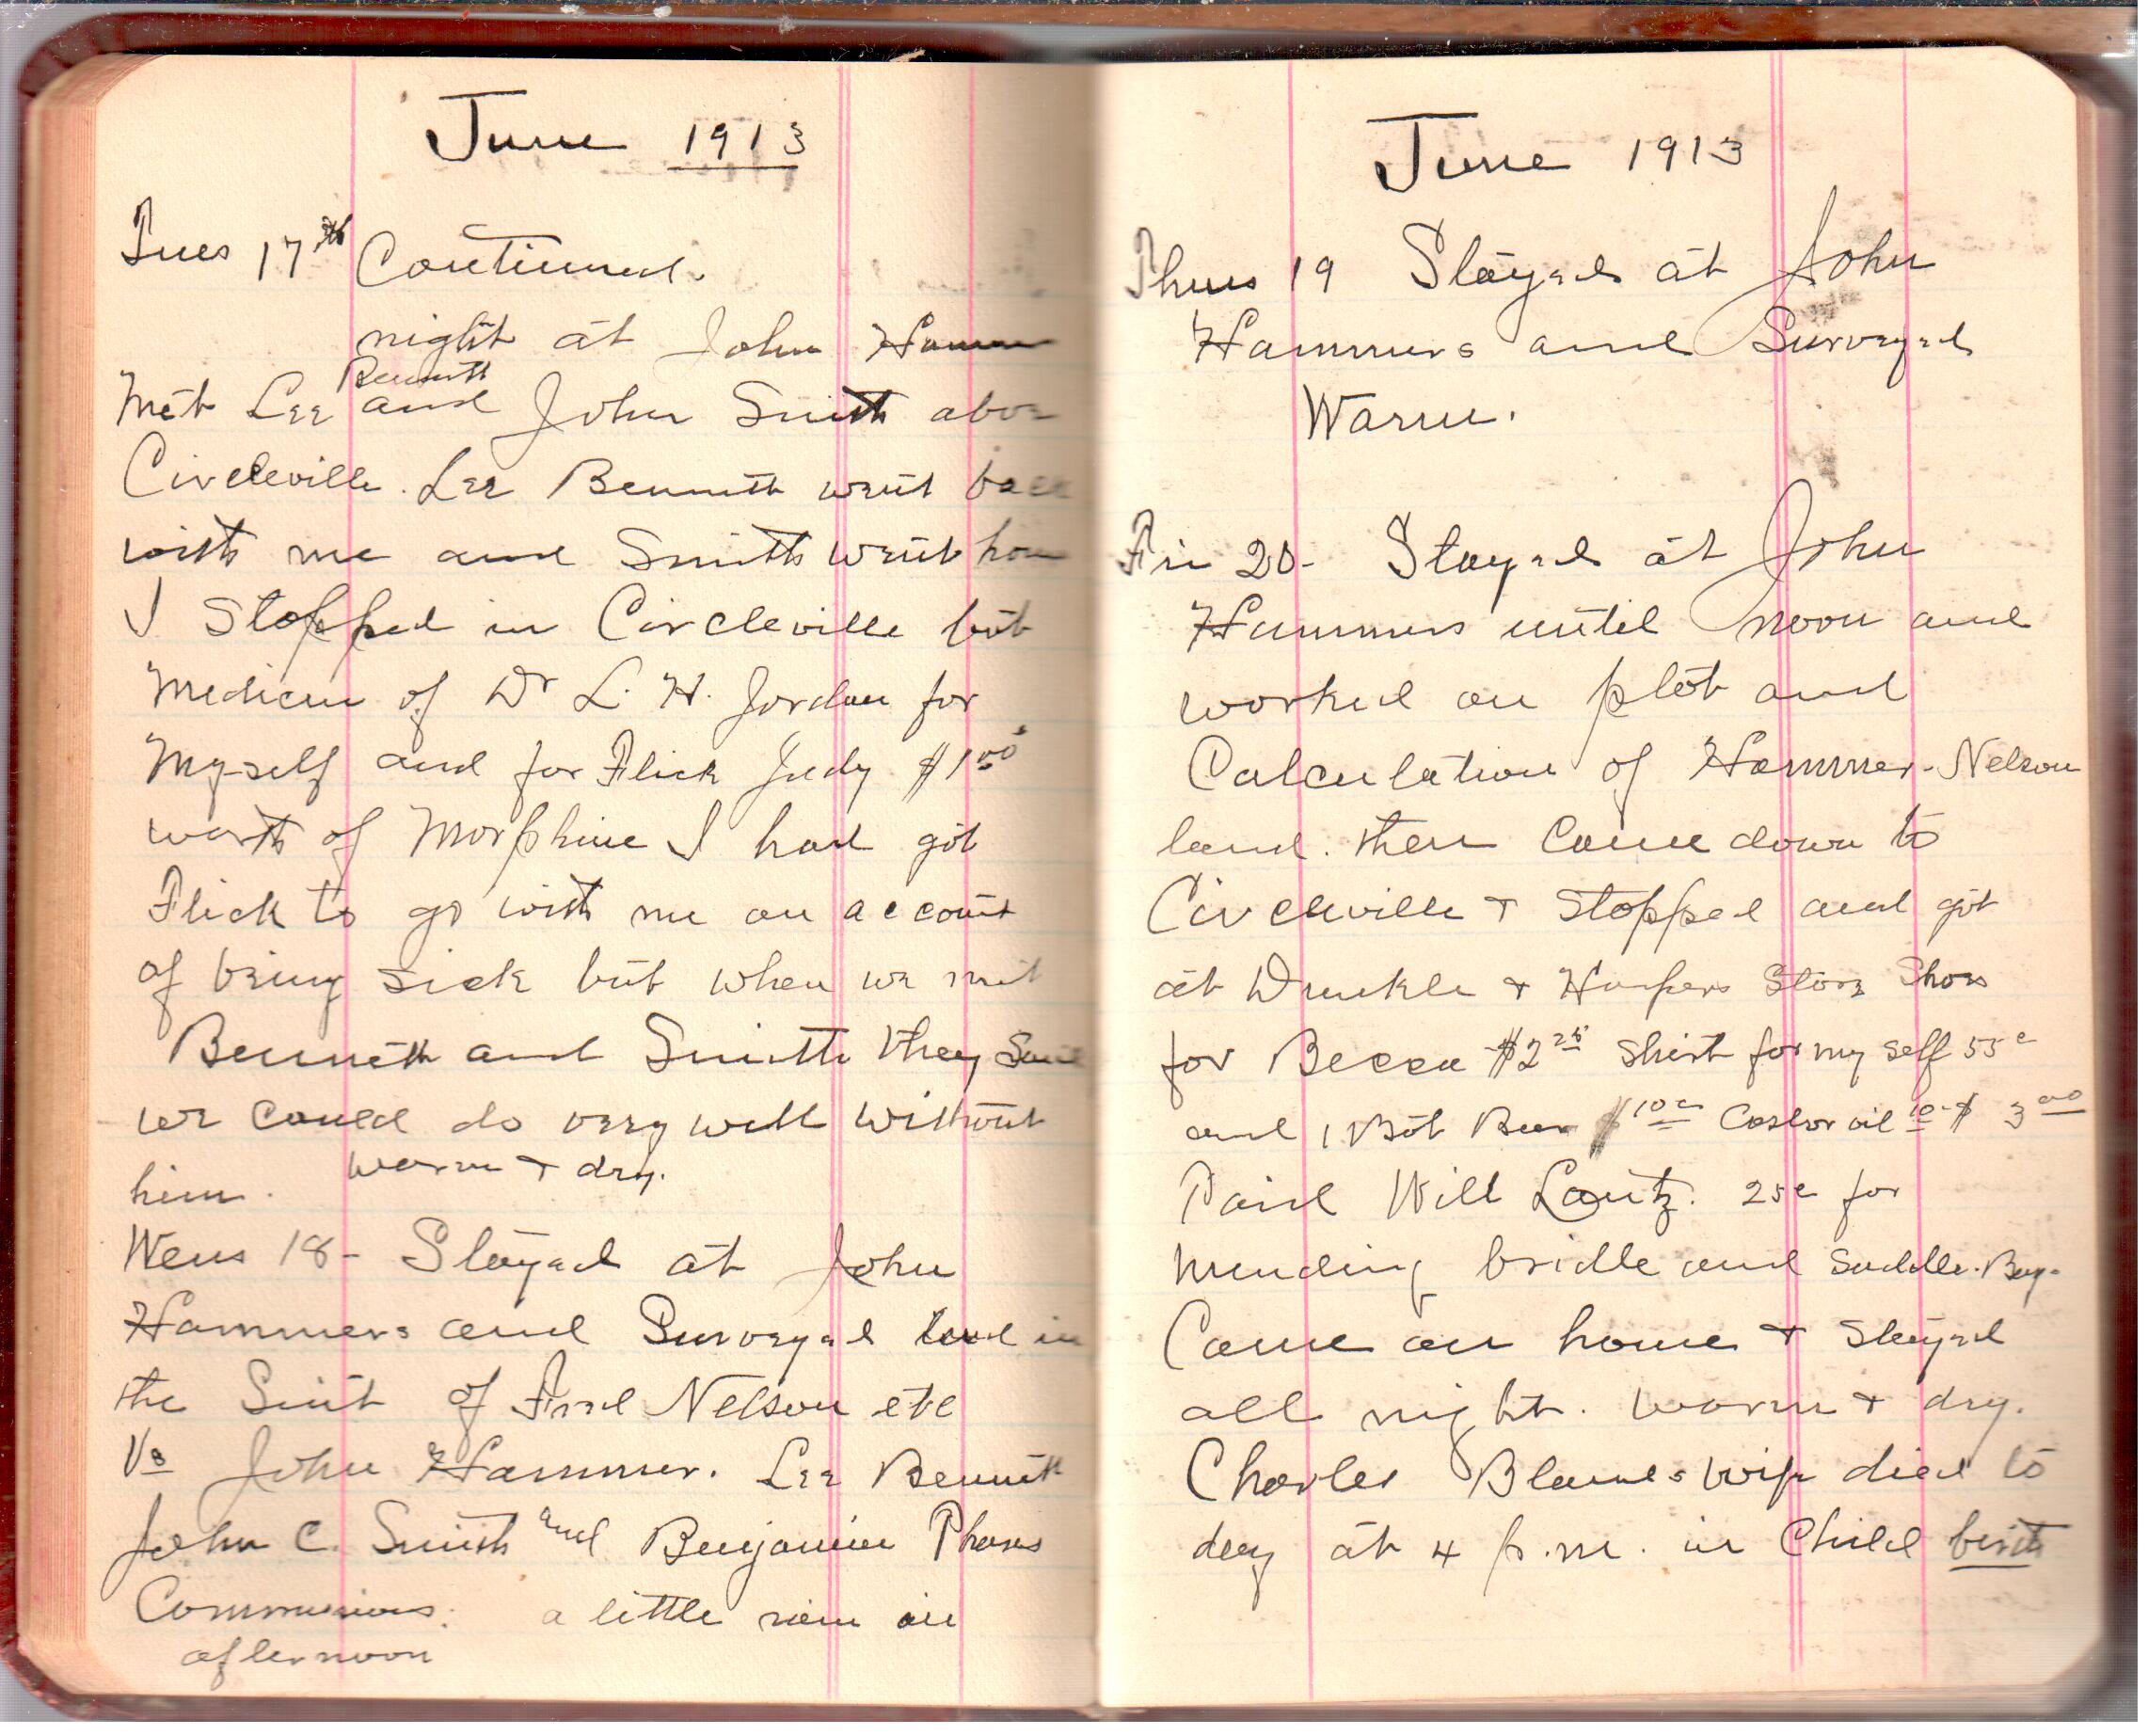 June 1913
Tues 17th Continued.
night at John Hammer
Bennett
Met Lee and John Smith above
Circleville. Lee Bennett went back
with me and Smith went home
I stopped in Circleville but
Medicin of Dr L. H. Jordan for
Myself and for Flick Judy $1 00
worth of Morphine I had got
Flick to go with me on account
of being sick but when we met
Bennett and Smith they said
we could do very well without
him. warm + dry.
Wens 18 - Stayed at John
Hammers and Surveyed land in
the Suit of Fred Nelson etc
Vs John Hammer. Lee Bennett
John C. Smith and Benjamin Phares
a little rain in
afternoon
June 1913
Thurs 19 Stayed at John
Hammers and Surveyed
Warm.
Fri 20- Stayed at John
Hammers until noon and
worked on plot and
Calculation of Hammer-Nelson
land. then Come down to
Circleville + stopped and got
at Dunkle + Harpers Store Shoes
for Becca $2 25 Shirt for my self 55c
and 1 Bot Beer $10c Castor oil 10- $ 3 00
Paid Will Lantz. 25c for
mending bridle and Saddle-Bag-
Come on home + stayed
all night. Warm + dry.
Charles Bland's wife died to
day at 4 p.m. in Child birth